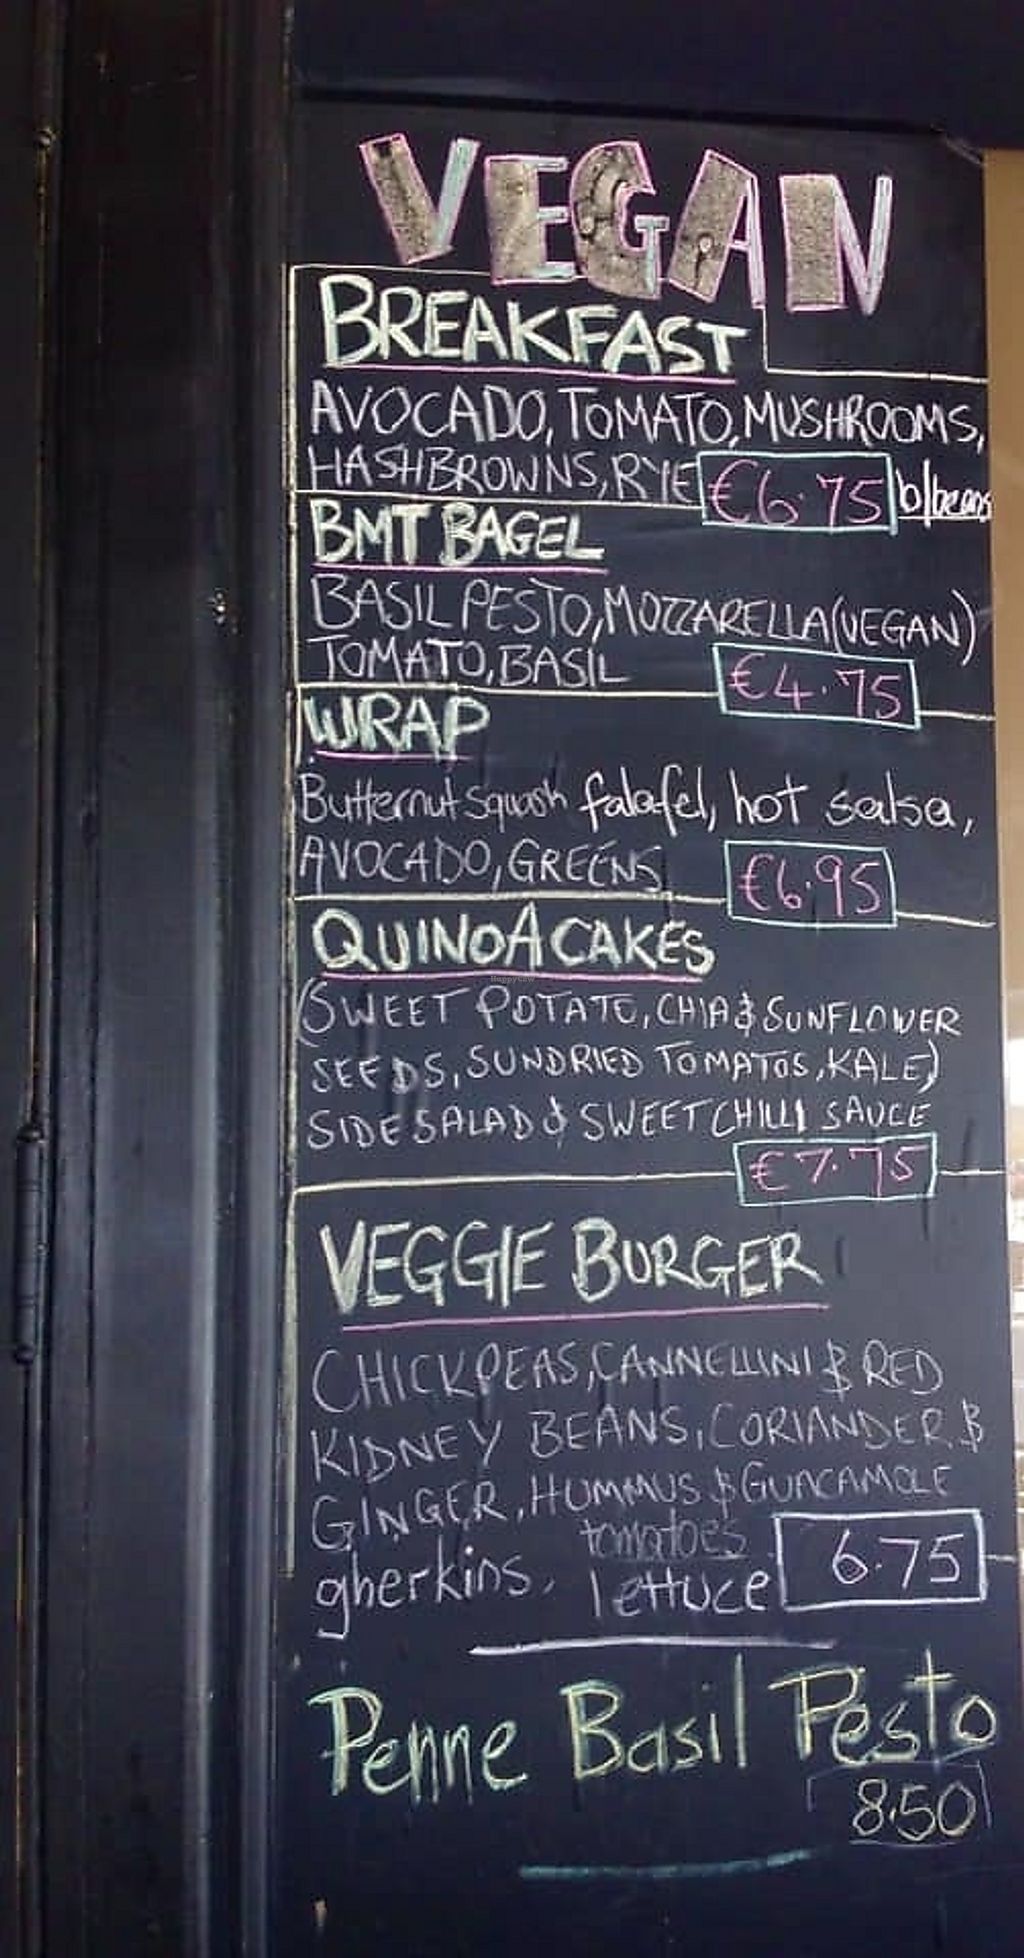 VEGAN
BREAKFAST
AVOCADO, TOMATO, MUSHROOMS,
HASHBROWNS, RYE €6.75 b/beans
BMT BAGEL
BASIL PESTO, MOZZARELLA (VEGAN)
TOMATO, BASIL €4.75
WRAP
Butternut squash falafel, hot salsa,
AVOCADO, GREENS €6.95
QUINOA CAKES
HappyCow
(SWEET POTATO, CHIA & SUNFLOWER
SEEDS, SUNDRIED TOMATOS, KALE,)
SIDE SALAD & SWEET CHILLI SAUCE
€7.75
VEGGIE BURGER
CHICKPEAS, CANNELLINI & RED
KIDNEY BEANS, CORIANDER, &
GINGER, HUMMUS & GUACAMOLE
tomatoes
gherkins. lettuce 6.75
Penne Basil Pesto
8.50